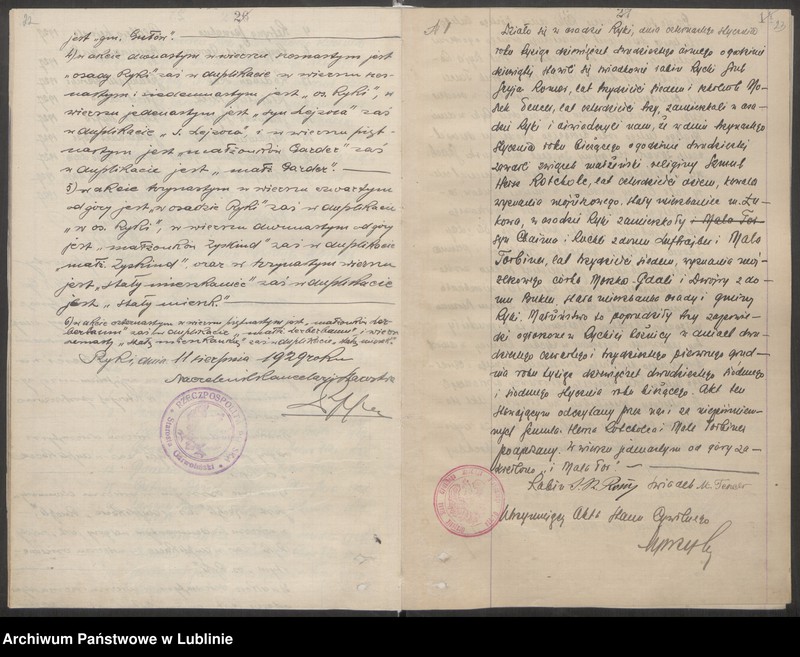 22
28
jest „gm.
4) w akcie dwunastym w wierszu ósmastym jest
„osady Ryki" zaś w duplikacie w wierszu
i siedemnastym jest „os. Ryki", w
wierszu jedenastym jest „syn Lejzora" zaś
w duplikacie „s. Lejzora", i w wierszu pięt-
nastym jest „małżonków Garder" zaś
w duplikacie jest „małż. Garder".
5) w akcie trzynastym w wierszu czwartym
od góry jest „w osadzie Ryki" zaś w duplikacie
„w os. Ryki", w wierszu dwunastym od góry
jest „małżonków Zyskind" zaś w duplikacie
„małż. Zyskind", oraz w trzynastym wierszu
jest „stały mieszkaniec" zaś w duplikacie
jest „stały mieszk."
6) w akcie w wierszu piętnastym jest „małżonków
" zaś w duplikacie „małż. " i wiersz
„stały mieszkaniec" zaś w duplikacie „stały mieszk."
Ryki, dnia 11 sierpnia 1929 roku
Naczelnik Kancelarji Starostwa
RZECZPOSPOLITA
Garwoliński
№ 1
27
23
Działo się w osadzie Ryki, dnia czternastego stycznia
roku tysiąc dziewięćset dwudziestego ósmego o godzinie
dziewiątej stawili się świadkowie rabin Rycki Szul
Szyja Romer, lat trzydzieści siedem i szkolnik Mo-
szek Fenster, lat czterdzieści trzy, zamieszkali w osa-
dzie Ryki i oświadczyli nam, że w dniu trzynastego
stycznia roku bieżącego o godzinie dwudziestej
zawarł związek małżeński religijny Szmul
Hersz Rotcholc, lat czterdzieści osiem, kawaler
wyznania mojżeszowego, stały mieszkaniec m. Łu-
kowa, w osadzie Ryki zamieszkały i Mala Tor
syn Chaima i Ruchli z domu Luftrajber i Mala
Torbiner, lat trzydzieści siedem, wyznania moj-
żeszowego córka Moszka-Gdali i Dwojry z do-
mu , stała mieszkanka osady i gminy
Ryki. Małżeństwo to poprzedziły trzy zapowie-
dzi ogłoszone w Ryckiej bożnicy w dniach dwu-
dziestego czwartego i trzydziestego pierwszego grud-
nia roku tysiąc dziewięćset dwudziestego siódmego
i siódmego stycznia roku bieżącego. Akt ten
stawającym odczytany przez nas i za niepiśmien-
nych Szmula Hersza Rotcholca i Male Torbiner
podpisany. W wierszu jedenastym od góry za-
kreślono „i Mala Tor"
Rabin S. R. świadek M. Fenster
Utrzymujący Akta Stanu Cywilnego
Archiwum Państwowe w Lublinie